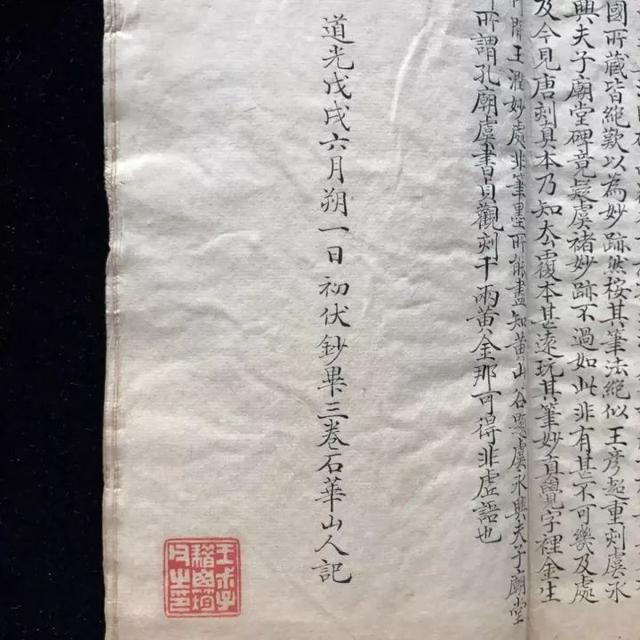 國所藏皆絕歎以為妙跡然按其筆法絕似王彥超重刻虞永
興夫子廟堂碑竟疑虞褚妙跡不過如此非有甚不可幾及處
及今見唐刻真本乃知覆本甚遠玩其筆妙直覺字裡金生
行間玉潤妙處非筆墨所能盡知黃山谷虞永興夫子廟堂
所謂孔廟虞書貞觀刻千兩黃金那可得非虛語也
道光戊戌六月朔一日初伏鈔畢三卷石華山人記